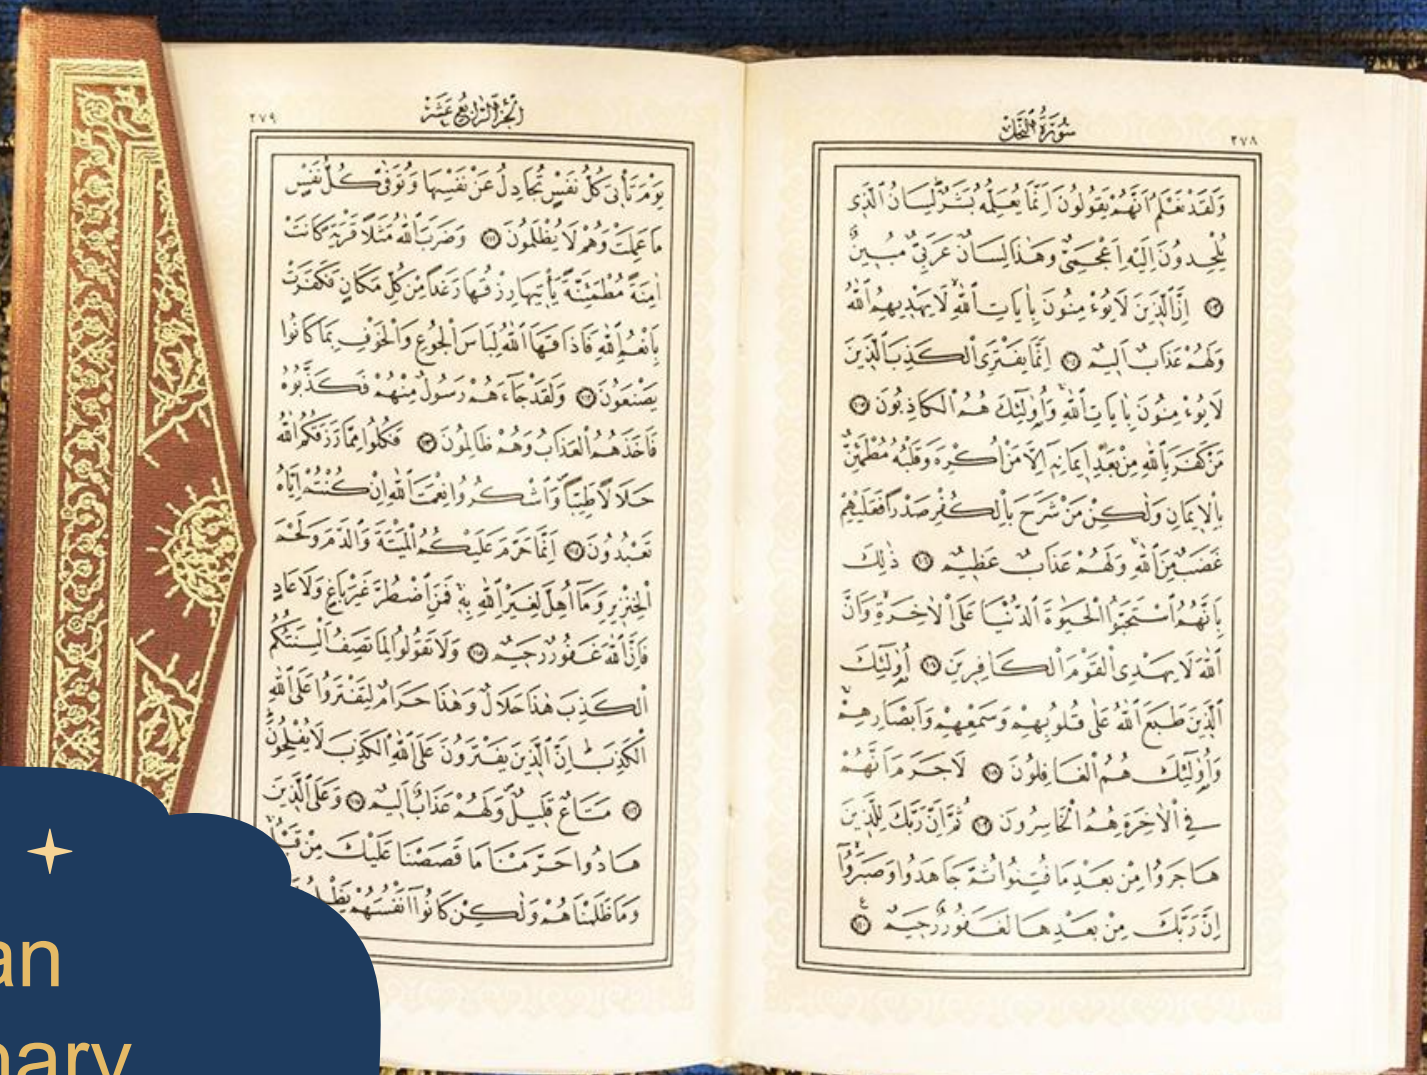 سُورَةُ النَّحْلِ
٢٧٨
وَلَقَدْ نَعْلَمُ اَنَّهُمْ يَقُولُونَ اِنَّمَا يُعَلِّمُهُ بَشَرٌ لِسَانُ الَّذِى
يُلْحِدُونَ اِلَيْهِ اَعْجَمِىٌّ وَهٰذَا لِسَانٌ عَرَبِىٌّ مُبِينٌ
﴿١٠٣﴾ اِنَّ الَّذِينَ لَا يُؤْمِنُونَ بِاٰيَاتِ اللّٰهِ لَا يَهْدِيهِمُ اللّٰهُ
وَلَهُمْ عَذَابٌ اَلِيمٌ ﴿١٠٤﴾ اِنَّمَا يَفْتَرِى الْكَذِبَ الَّذِينَ
لَا يُؤْمِنُونَ بِاٰيَاتِ اللّٰهِ وَاُولٰئِكَ هُمُ الْكَاذِبُونَ ﴿١٠٥﴾
مَنْ كَفَرَ بِاللّٰهِ مِنْ بَعْدِ اِيمَانِهِ اِلَّا مَنْ اُكْرِهَ وَقَلْبُهُ مُطْمَئِنٌّ
بِالْاِيمَانِ وَلٰكِنْ مَنْ شَرَحَ بِالْكُفْرِ صَدْرًا فَعَلَيْهِمْ
غَضَبٌ مِنَ اللّٰهِ وَلَهُمْ عَذَابٌ عَظِيمٌ ﴿١٠٦﴾ ذٰلِكَ
بِاَنَّهُمُ اسْتَحَبُّوا الْحَيٰوةَ الدُّنْيَا عَلَى الْاٰخِرَةِ وَاَنَّ
اللّٰهَ لَا يَهْدِى الْقَوْمَ الْكَافِرِينَ ﴿١٠٧﴾ اُولٰئِكَ
الَّذِينَ طَبَعَ اللّٰهُ عَلٰى قُلُوبِهِمْ وَسَمْعِهِمْ وَاَبْصَارِهِمْ
وَاُولٰئِكَ هُمُ الْغَافِلُونَ ﴿١٠٨﴾ لَا جَرَمَ اَنَّهُمْ
فِى الْاٰخِرَةِ هُمُ الْخَاسِرُونَ ﴿١٠٩﴾ ثُمَّ اِنَّ رَبَّكَ لِلَّذِينَ
هَاجَرُوا مِنْ بَعْدِ مَا فُتِنُوا ثُمَّ جَاهَدُوا وَصَبَرُوا
اِنَّ رَبَّكَ مِنْ بَعْدِهَا لَغَفُورٌ رَحِيمٌ ﴿١١٠﴾
اَلْجُزْءُ الرَّابِعُ عَشَرَ
٢٧٩
يَوْمَ تَأْتِى كُلُّ نَفْسٍ تُجَادِلُ عَنْ نَفْسِهَا وَتُوَفّٰى كُلُّ نَفْسٍ
مَا عَمِلَتْ وَهُمْ لَا يُظْلَمُونَ ﴿١١١﴾ وَضَرَبَ اللّٰهُ مَثَلًا قَرْيَةً كَانَتْ
اٰمِنَةً مُطْمَئِنَّةً يَأْتِيهَا رِزْقُهَا رَغَدًا مِنْ كُلِّ مَكَانٍ فَكَفَرَتْ
بِاَنْعُمِ اللّٰهِ فَاَذَاقَهَا اللّٰهُ لِبَاسَ الْجُوعِ وَالْخَوْفِ بِمَا كَانُوا
يَصْنَعُونَ ﴿١١٢﴾ وَلَقَدْ جَاءَهُمْ رَسُولٌ مِنْهُمْ فَكَذَّبُوهُ
فَاَخَذَهُمُ الْعَذَابُ وَهُمْ ظَالِمُونَ ﴿١١٣﴾ فَكُلُوا مِمَّا رَزَقَكُمُ اللّٰهُ
حَلَالًا طَيِّبًا وَاشْكُرُوا نِعْمَتَ اللّٰهِ اِنْ كُنْتُمْ اِيَّاهُ
تَعْبُدُونَ ﴿١١٤﴾ اِنَّمَا حَرَّمَ عَلَيْكُمُ الْمَيْتَةَ وَالدَّمَ وَلَحْمَ
الْخِنْزِيرِ وَمَا اُهِلَّ لِغَيْرِ اللّٰهِ بِهِ فَمَنِ اضْطُرَّ غَيْرَ بَاغٍ وَلَا عَادٍ
فَاِنَّ اللّٰهَ غَفُورٌ رَحِيمٌ ﴿١١٥﴾ وَلَا تَقُولُوا لِمَا تَصِفُ اَلْسِنَتُكُمُ
الْكَذِبَ هٰذَا حَلَالٌ وَهٰذَا حَرَامٌ لِتَفْتَرُوا عَلَى اللّٰهِ
الْكَذِبَ اِنَّ الَّذِينَ يَفْتَرُونَ عَلَى اللّٰهِ الْكَذِبَ لَا يُفْلِحُونَ
﴿١١٦﴾ مَتَاعٌ قَلِيلٌ وَلَهُمْ عَذَابٌ اَلِيمٌ ﴿١١٧﴾ وَعَلَى الَّذِينَ
هَادُوا حَرَّمْنَا مَا قَصَصْنَا عَلَيْكَ مِنْ قَبْلُ
وَمَا ظَلَمْنَاهُمْ وَلٰكِنْ كَانُوا اَنْفُسَهُمْ
an
nary